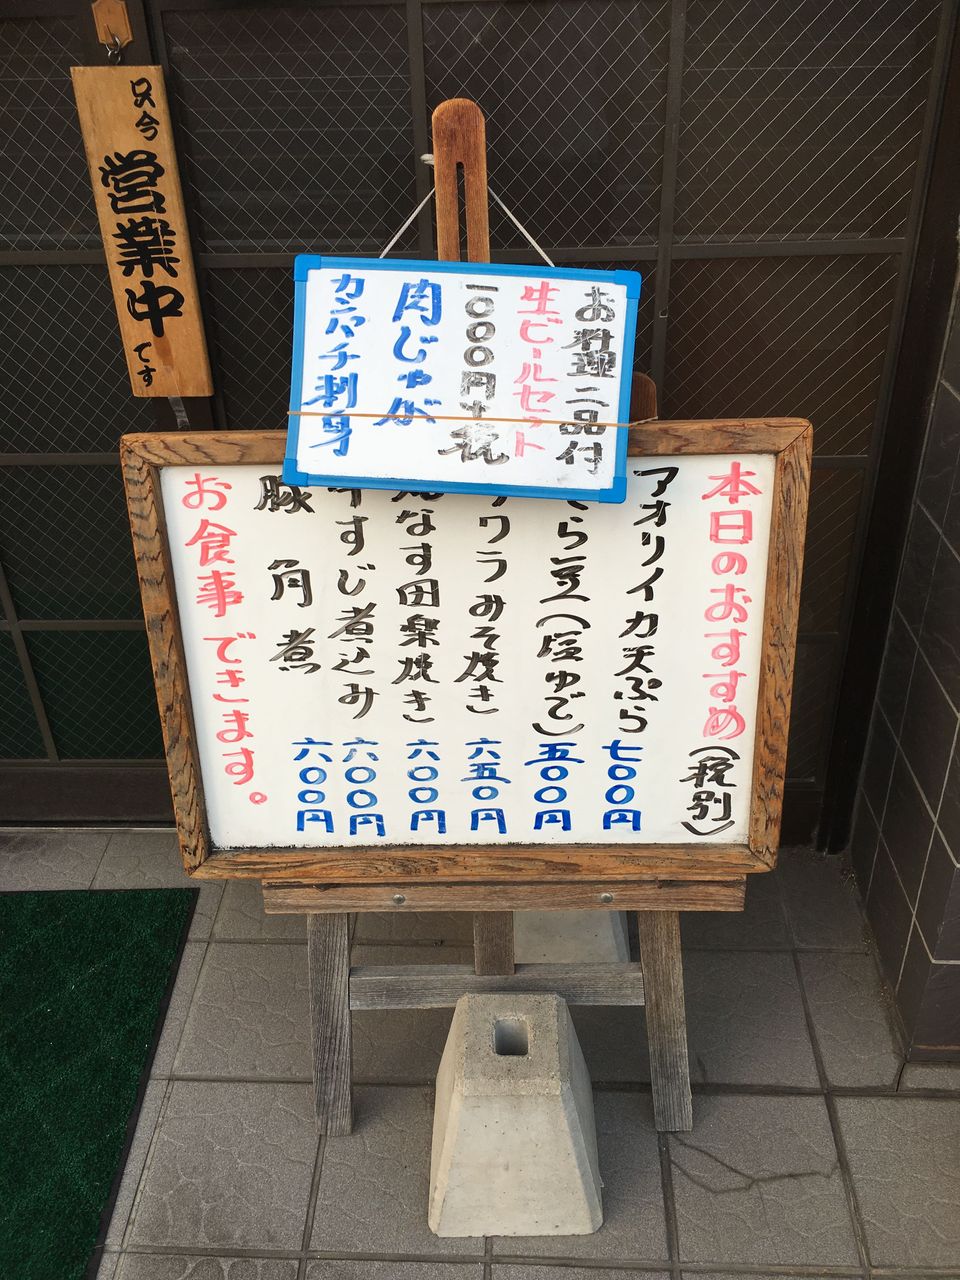 只今
営業中
です
お料理二品付
生ビールセット
一〇〇〇円+税
肉じゃが
カンパチ刺身
本日のおすすめ
(税別)
アオリイカ天ぷら 七〇〇円
そら豆(塩ゆで) 五〇〇円
サワラみそ焼き 六五〇円
なす田楽焼き 六〇〇円
牛すじ煮込み 六〇〇円
豚角煮 六〇〇円
お食事できます。